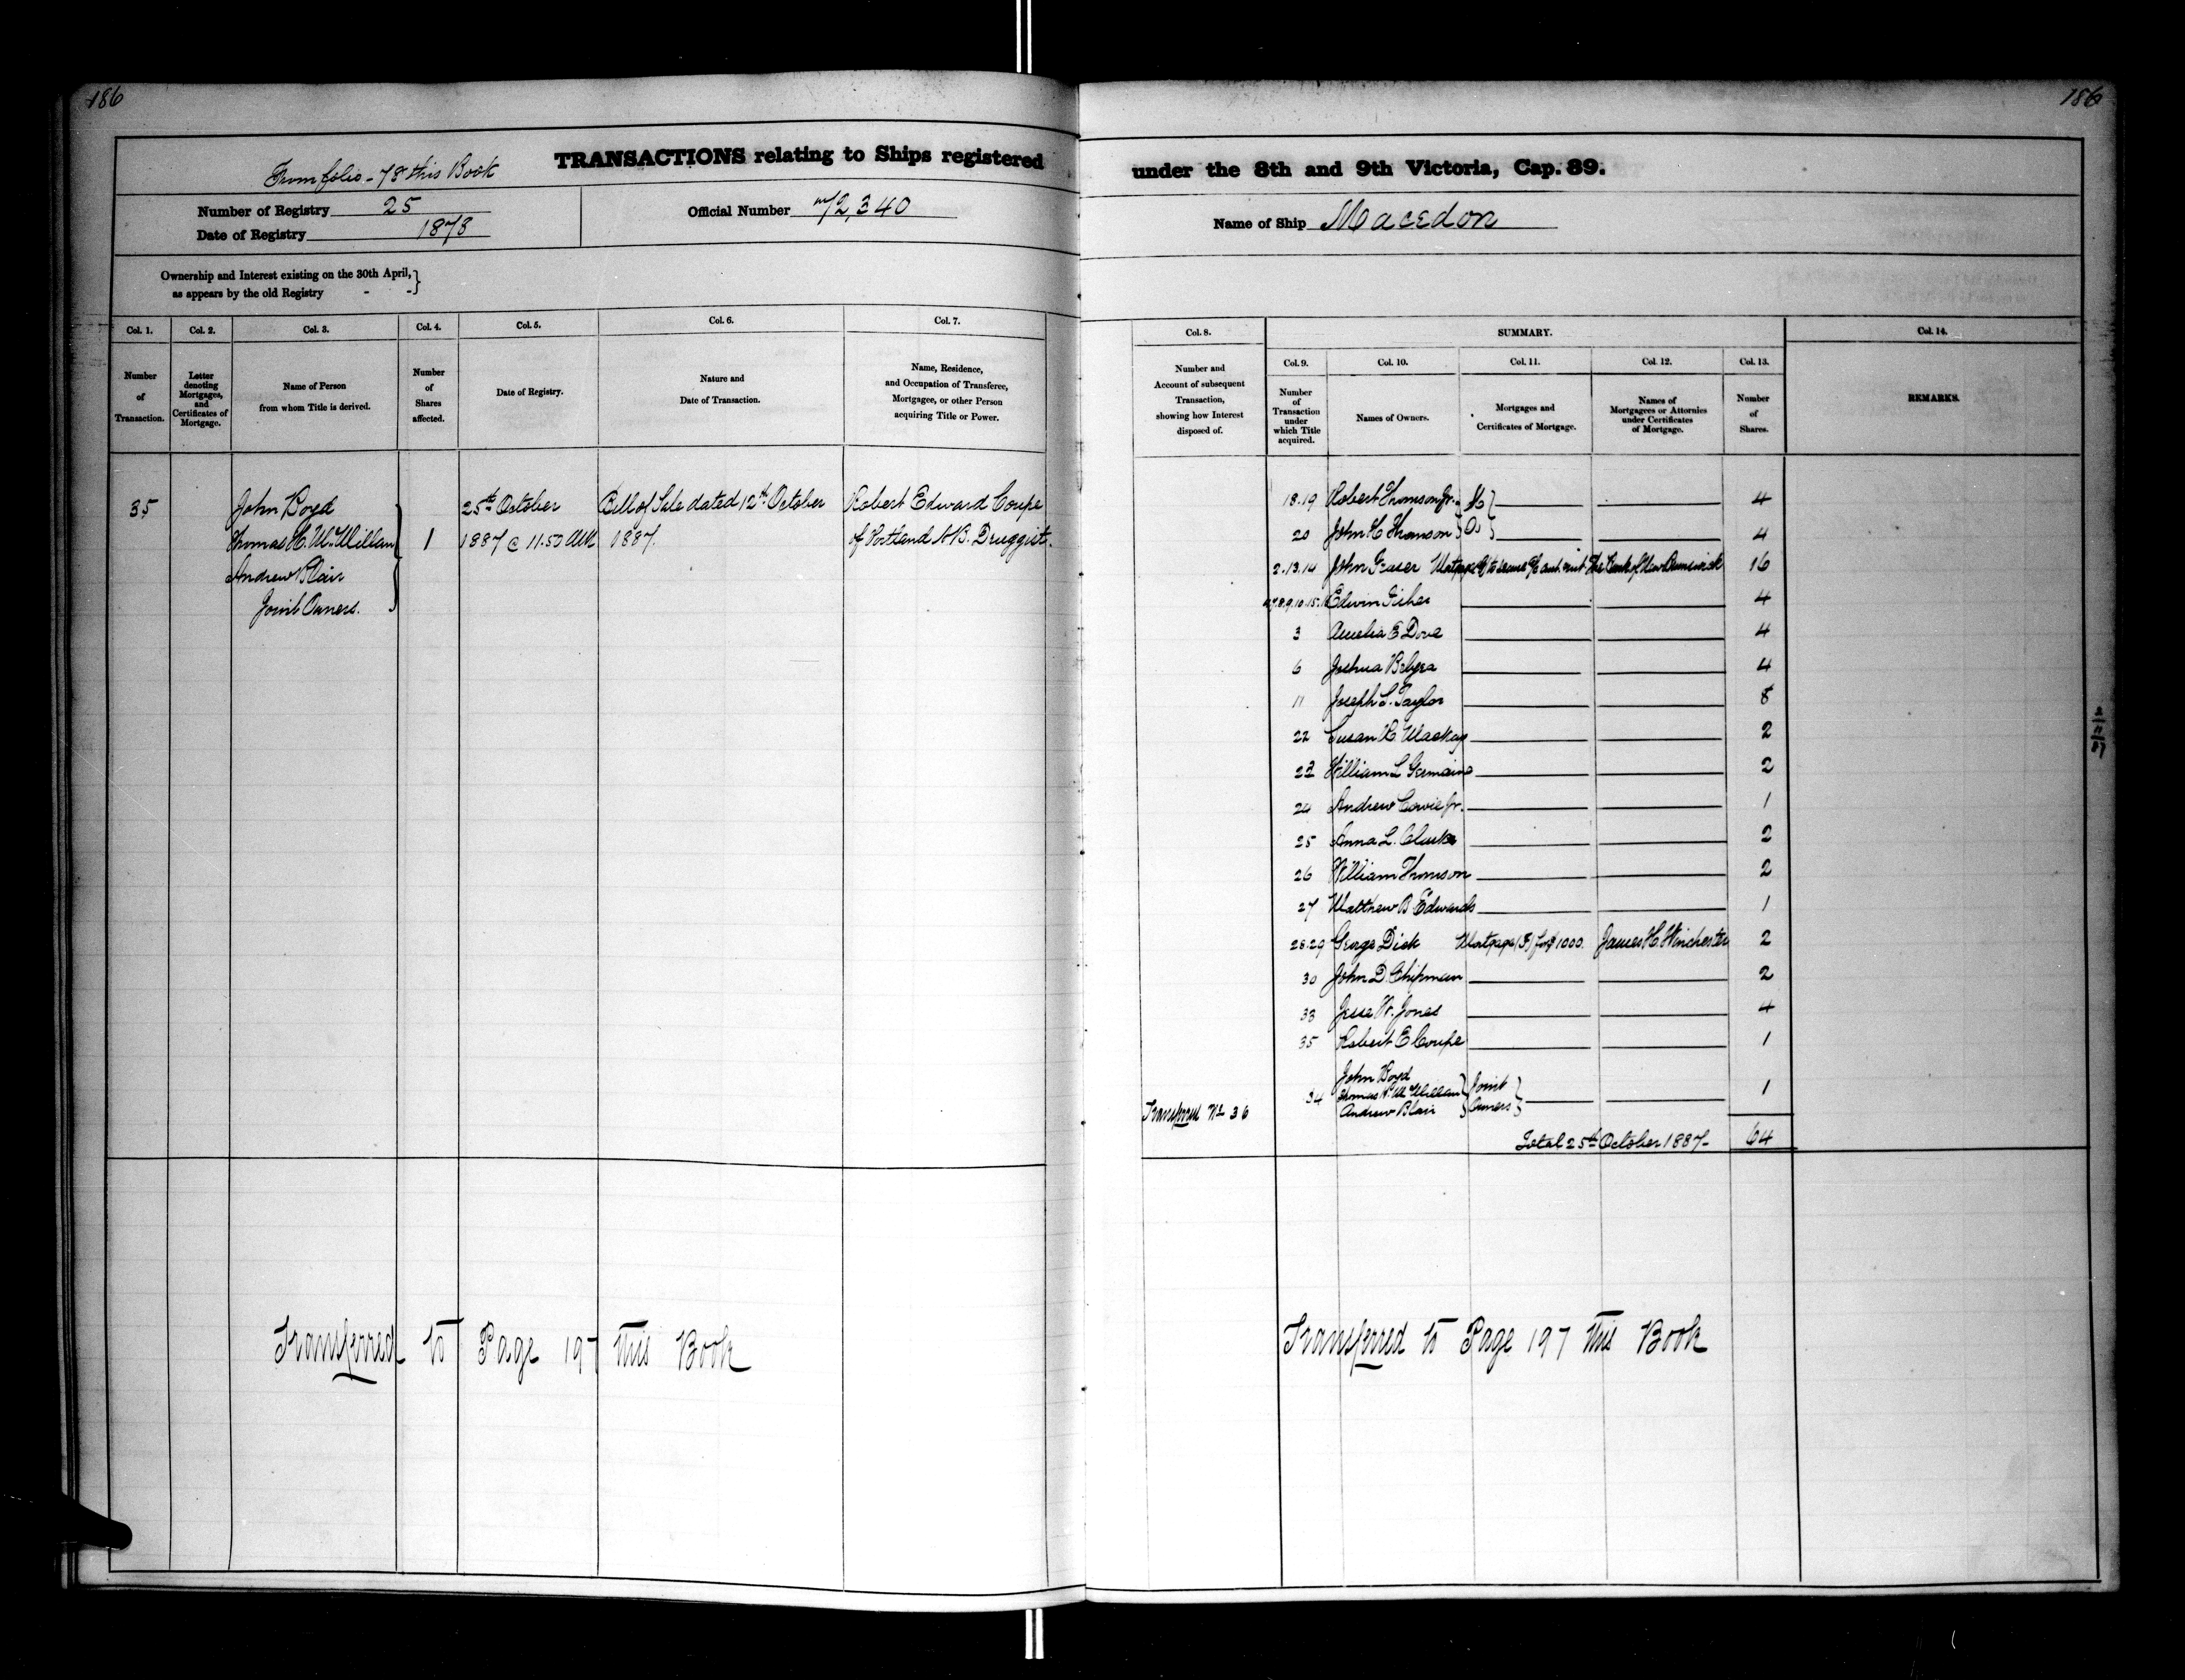 186
186
From folio - 78 this Book
TRANSACTIONS relating to Ships registered
under the 8th and 9th Victoria, Cap. 89.
Number of Registry 25
Date of Registry 1873
Official Number 72,340
Name of Ship Macedon
Ownership and Interest existing on the 30th April,
as appears by the old Registry - -
Col. 1. Col. 2. Col. 3. Col. 4. Col. 5. Col. 6. Col. 7.
Number of Transaction.
Letter denoting Mortgages, and Certificates of Mortgage.
Name of Person from whom Title is derived.
Number of Shares affected.
Date of Registry.
Nature and Date of Transaction.
Name, Residence, and Occupation of Transferee, Mortgagee, or other Person acquiring Title or Power.
35 John Boyd 25th October Bill of Sale dated 12th October Robert Edward Coupe
Thomas H. McMillan 1 1887 @ 11.50 AM 1887. of Portland N.B. Druggist.
Andrew Blair
Joint Owners.
Transferred to Page 197 this Book
Col. 8. SUMMARY. Col. 14.
Col. 9. Col. 10. Col. 11. Col. 12. Col. 13.
Number and Account of subsequent Transaction, showing how Interest disposed of.
Number of Transaction under which Title acquired.
Names of Owners.
Mortgages and Certificates of Mortgage.
Names of Mortgagees or Attornies under Certificates of Mortgage.
Number of Shares.
REMARKS.
18.19 Robert Thomson Jr. 4
20 John H Thomson 4
2.13.14 John Fraser Mortgage to secure The Bank of New Brunswick 16
Edwin Fisher 4
3 Amelia E Dove 4
6 Joshua 4
11 Joseph L. Taylor 8
22 Susan R. Mackay 2
23 William L Germaine 2
24 Andrew Cowie Jr. 1
25 Anna L. Clarke 2
26 William Thomson 2
27 Matthew B Edwards 1
28.29 George Dick Mortgage (F) for $1000. James H. Winchester 2
30 John D. Chipman 2
33 Jesse W. Jones 4
35 Robert E Coupe 1
John Boyd
34 Thomas H. McMillan Joint Owners 1
Andrew Blair
Transferred No 36
Total 25th October 1887 - 64
Transferred to Page 197 this Book